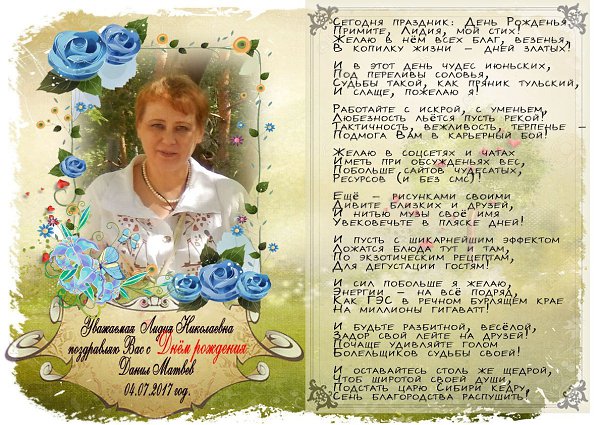 Уважаемая Лидия Николаевна
поздравляю Вас с Днём рождения
Данил Матвев
04.07.2017 год.
Сегодня праздник: День Рожденья
Примите, Лидия, мой стих!
Желаю в нём всех благ, везенья,
В копилку жизни – дней златых!
И в этот день чудес июньских,
Под переливы соловья,
Судьбы такой, как пряник тульский,
И слаще, пожелаю я!
Работайте с искрой, с уменьем,
Любезность льётся пусть рекой!
Тактичность, вежливость, терпенье –
Подмога Вам в карьерный бой!
Желаю в соцсетях и чатах
Иметь при обсужденьях вес,
Побольше сайтов чудесатых,
Ресурсов (и без смс)!
Ещё – рисунками своими
Дивите близких и друзей,
И нитью музы своё имя
Увековечьте в пляске дней!
И пусть с шикарнейшим эффектом
Ложатся блюда тут и там,
По экзотическим рецептам,
Для дегустации гостям!
И сил побольше я желаю,
Энергии – на всё подряд,
Как ГЭС в речном бурлящем крае
На миллионы гигаватт!
И будьте разбитной, весёлой,
Задор свой лейте на друзей!
Почаще удивляйте голом
Болельщиков судьбы своей!
И оставайтесь столь же щедрой,
Чтоб широтой своей души,
Подстать царю Сибири кедру,
Сень благородства распушить